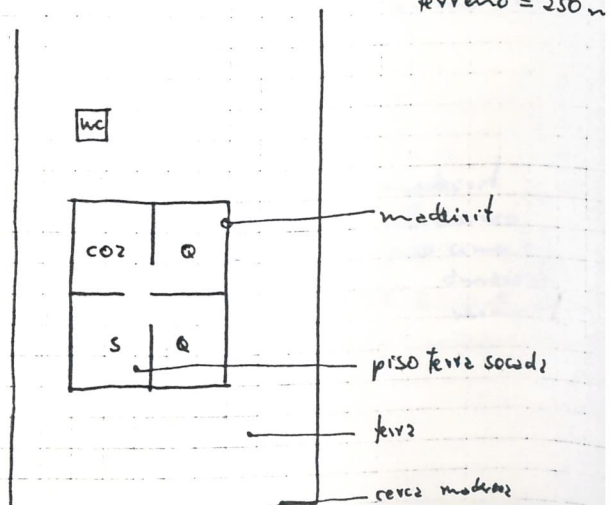 terreno = 250 m
WC
COZ
Q
S
Q
madeirit
piso terra socada
terra
cerca madeira